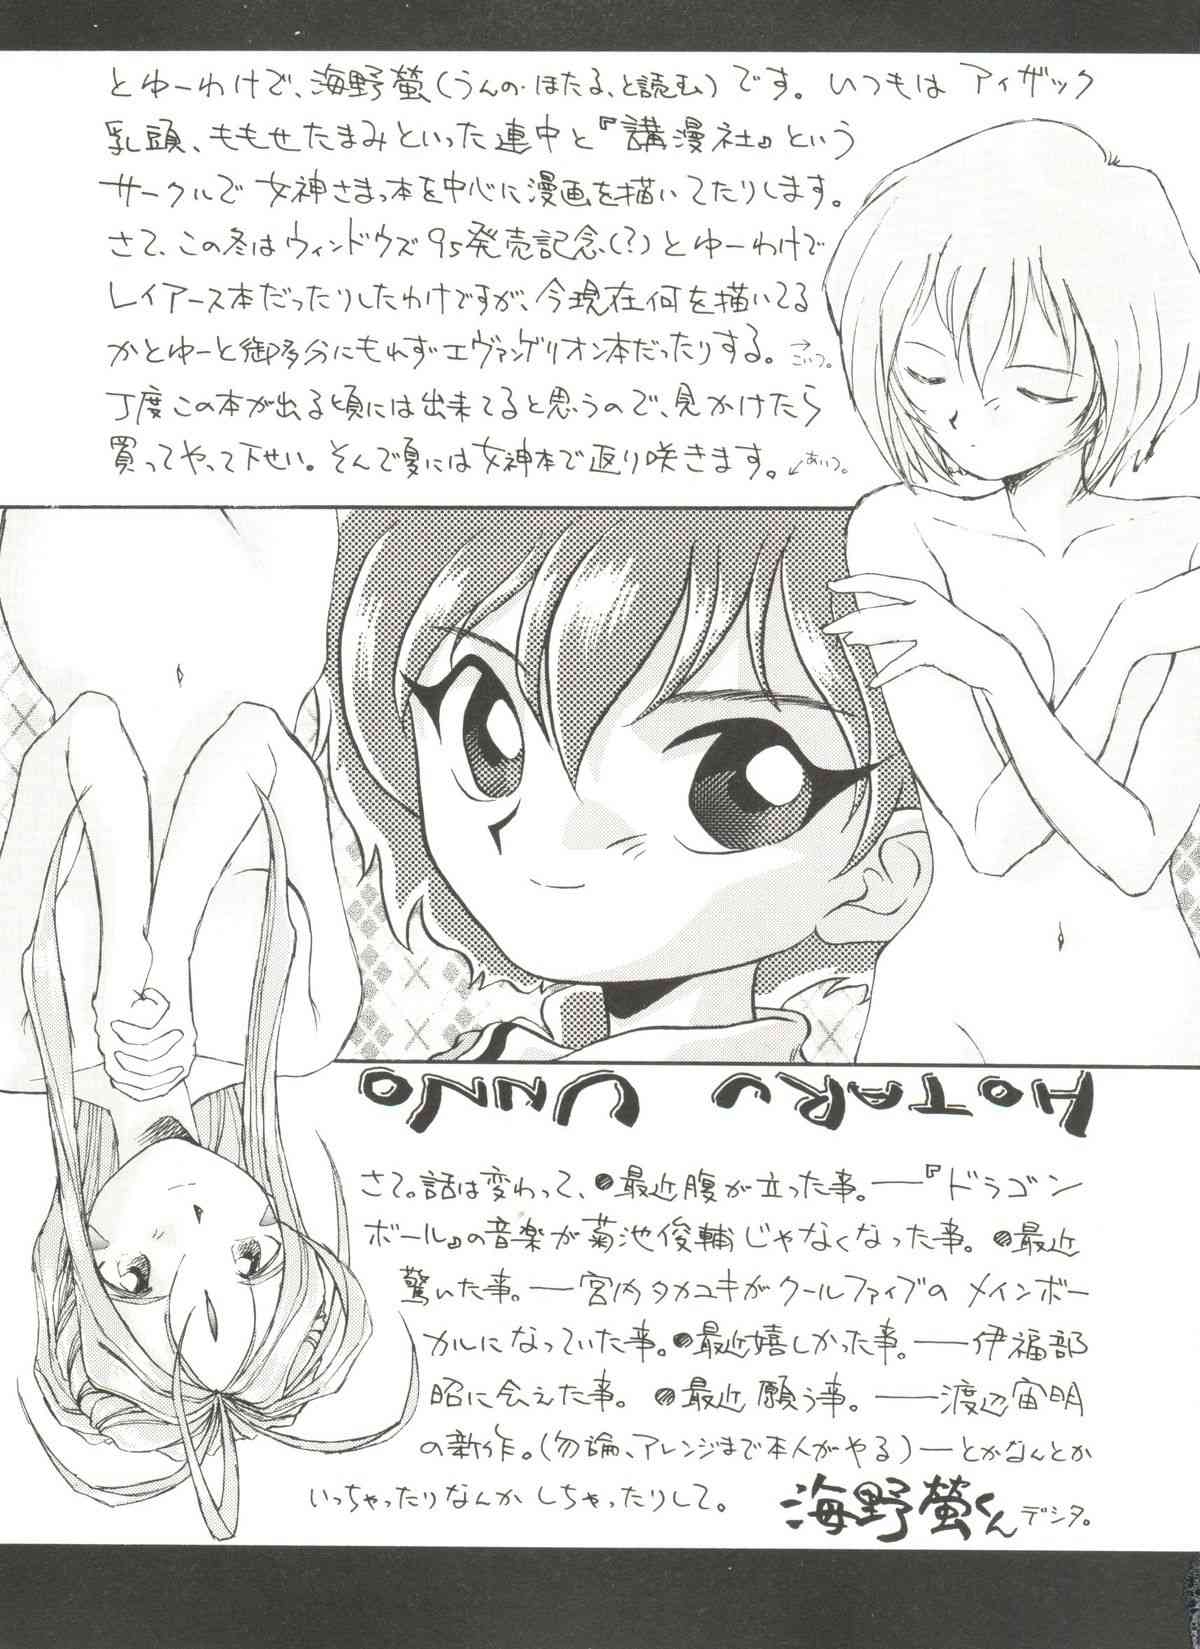 とゆーわけで、海野螢(うんの・ほたる、と読む)です。いつもは アイザック
乳頭、ももせたまみといった連中と『講漫社』という
サークルで女神さまっ本を中心に漫画を描いてたりします。
さて、この冬はウィンドウズ95発売記念(?)とゆーわけで
レイアース本だったりしたわけですが、今現在何を描いてる
かとゆーと御多分にもれずエヴァンゲリオン本だったりする。→こいつ。
丁度この本が出る頃には出来てると思うので、見かけたら
買ってやって下せい。そんで夏には女神本で返り咲きます。↙あいつ。
HOTARU UNNO
さて。話は変わって、●最近腹が立った事。—『ドラゴン
ボール』の音楽が菊池俊輔じゃなくなった事。●最近
驚いた事。—宮内タカユキがクールファイブのメインボー
カルになっていた事。●最近嬉しかった事。—伊福部
昭に会えた事。●最近願う事。—渡辺宙明
の新作。(勿論、アレンジまで本人がやる)—とかなんとか
いっちゃったりなんかしちゃったりして。 海野螢くん デシタ。